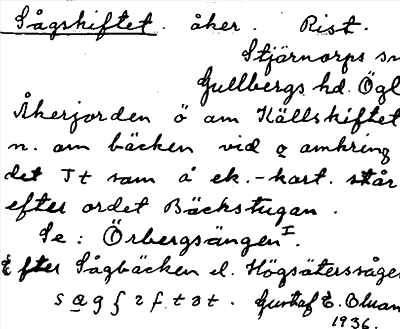 Sågskiftet. åker. Rist.
Stjärnorps sn
Gullbergs hd. Ögl
Åkerjorden ö om Källskiftet
n. om bäcken vid o omkring
det Tt som å ek.-kart. står
efter ordet Bäckstugan.
Se: Örbergsängen I.
Efter Sågbäcken el. Högsäterssågen
Gustaf E. Oluan
1936.